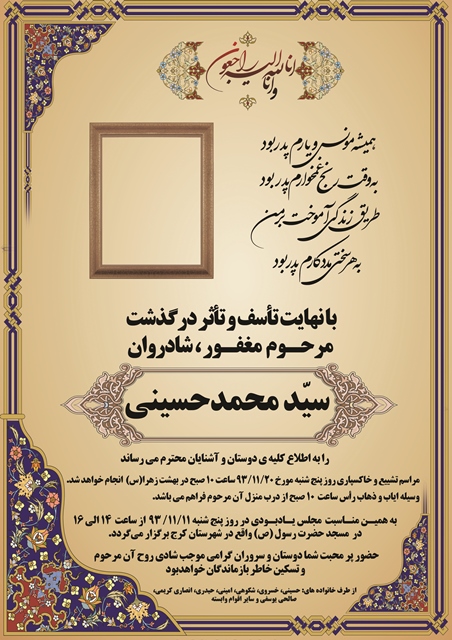 انا لله وانا الیه راجعون
همیشه مونس و یارم پدر بود
به وقت رنج غمخوارم پدر بود
طریق زندگی آموخت بر من
به هر سختی مددکارم پدر بود
با نهایت تأسف و تأثر درگذشت
مرحوم مغفور، شادروان
سیّد محمدحسینی
را به اطلاع کلیه ی دوستان و آشنایان محترم می رساند
مراسم تشییع و خاکسپاری روز پنج شنبه مورخ ۹۳/۱۱/۲۰ ساعت ۱۰ صبح در بهشت زهرا(س) انجام خواهد شد.
وسیله ایاب و ذهاب رأس ساعت ۱۰ صبح از درب منزل آن مرحوم فراهم می باشد.
به همین مناسبت مجلس یادبودی در روز پنج شنبه ۹۳/۱۱/۱۱ از ساعت ۱۴ الی ۱۶
در مسجد حضرت رسول (ص) واقع در شهرستان کرج برگزار می‌گردد.
حضور پر محبت شما دوستان و سروران گرامی موجب شادی روح آن مرحوم
و تسکین خاطر بازماندگان خواهدبود
از طرف خانواده های: حسینی، خسروی، شکوهی، امینی، حیدری، انصاری کریمی،
صالحی یوسفی و سایر اقوام وابسته